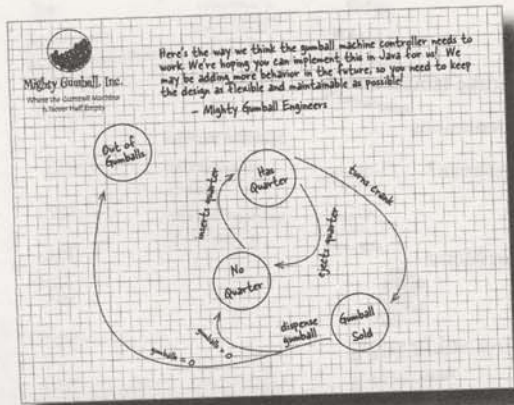 Mighty Gumball, Inc.
Where the Gumball Machine
is Never Half Empty
Here's the way we think the gumball machine controller needs to
work. We're hoping you can implement this in Java for us! We
may be adding more behavior in the future, so you need to keep
the design as flexible and maintainable as possible!
- Mighty Gumball Engineers
Out of
Gumballs
Has
Quarter
inserts quarter
turns crank
ejects quarter
No
Quarter
Gumball
Sold
dispense
gumball
gumballs > 0
gumballs = 0